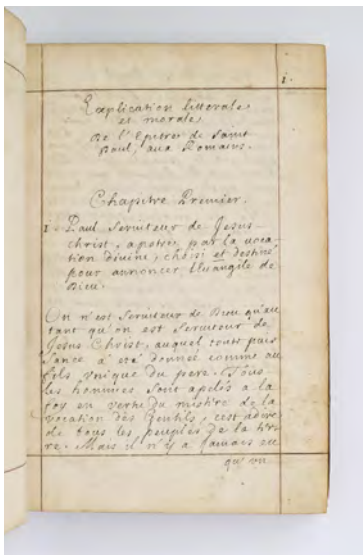 1.
Explication litterale
et morale
De l'Epitre de Saint
Paul, aux Romains.
Chapitre Premier.
1 Paul Serviteur de Jesus
christ, apotre par la voca
tion divine, choisi et destiné
pour annoncer l'Evangile de
Dieu.
On n'est Serviteur de Dieu qu'au
tant qu'on est Serviteur de
Jesus Christ, auquel toute puis
sance a été donnée comme au
fils unique du pere. Tous
les hommes sont apelés a la
foy en vertu du mistere de la
vocation des Gentils, c'est adire
de tous les peuples de la ter
re. Mais il n'y a jamais eu
qu'un